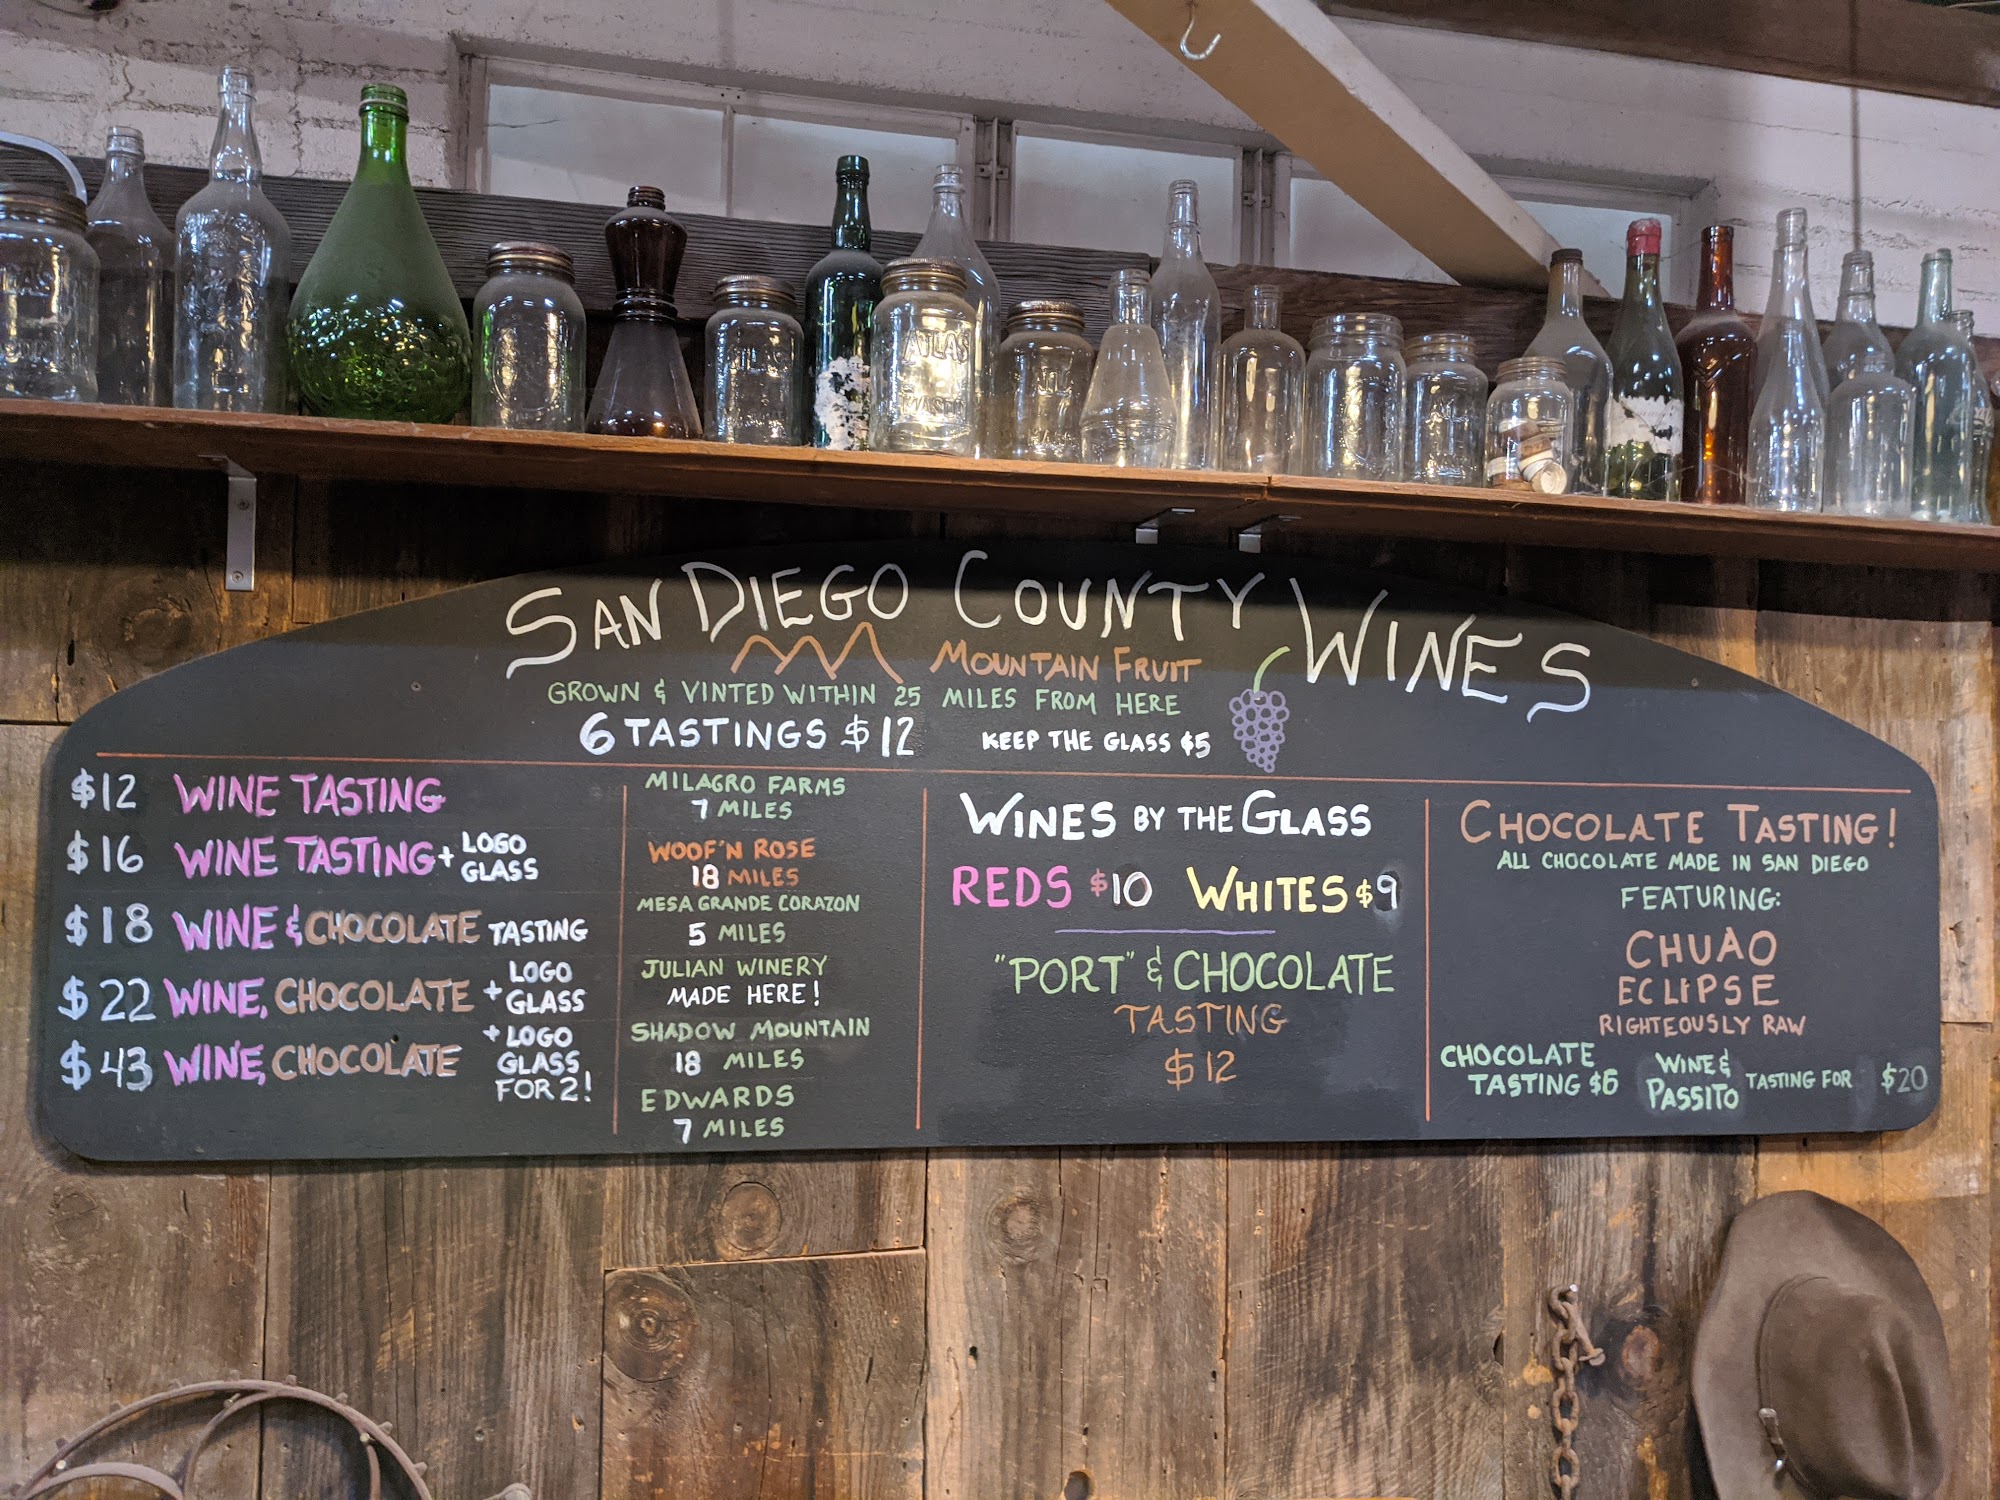 SAN DIEGO COUNTY WINES
MOUNTAIN FRUIT
GROWN & VINTED WITHIN 25 MILES FROM HERE
6 TASTINGS $12 KEEP THE GLASS $5
$12 WINE TASTING
$16 WINE TASTING + LOGO
GLASS
$18 WINE & CHOCOLATE TASTING
$22 WINE, CHOCOLATE + LOGO
GLASS
$43 WINE, CHOCOLATE + LOGO
GLASS
FOR 2!
MILAGRO FARMS
7 MILES
WOOF'N ROSE
18 MILES
MESA GRANDE CORAZON
5 MILES
JULIAN WINERY
MADE HERE!
SHADOW MOUNTAIN
18 MILES
EDWARDS
7 MILES
WINES BY THE GLASS
REDS $10 WHITES $9
"PORT" & CHOCOLATE
TASTING
$12
CHOCOLATE TASTING!
ALL CHOCOLATE MADE IN SAN DIEGO
FEATURING:
CHUAO
ECLIPSE
RIGHTEOUSLY RAW
CHOCOLATE
TASTING $6
WINE &
PASSITO TASTING FOR $20
ATLAS
MASON